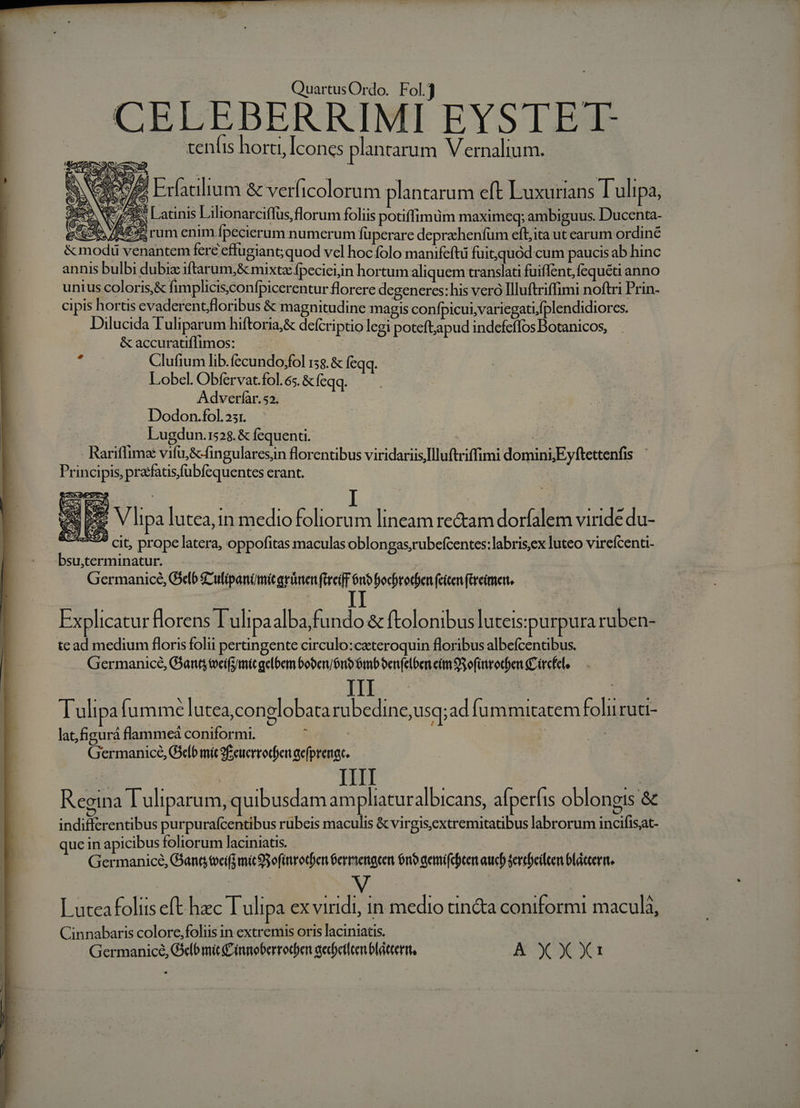 Quartus Ordo. Fol. J
CELEBERRIMI EYSTET-
tenſis horti, Icones plantarum Vernalium.
Erſatilium & verſicolorum plantarum eſt Luxurians Tulipa,
Latinis Lilionarciſſus, florum foliis potiſſimùm maximeq; ambiguus. Ducenta-
rum enim ſpecierum numerum ſuperare depræhenſum eſt, ita ut earum ordinẽ
& modũ venantem ferè effugiant; quod vel hoc ſolo manifeſtũ fuit, quòd cum paucis ab hinc
annis bulbi dubiæ iſtarum, & mixtæ ſpeciei, in hortum aliquem translati fuiſſent, ſequẽti anno
unius coloris, & ſimplicis, conſpicerentur florere degeneres: his verò Illuſtriſſimi noſtri Prin-
cipis hortis evaderent, floribus & magnitudine magis conſpicui, variegati, ſplendidiores.
Dilucida Tuliparum hiſtoria, & deſcriptio legi poteſt, apud indefeſſos Botanicos,
& accuratiſſimos:
Cluſium lib. ſecundo, fol 138. & ſeqq.
Lobel. Obſervat. fol. 65. & ſeqq.
Adverſar. 52.
Dodon. fol. 231.
Lugdun. 1528. & ſequenti.
Rariſſimæ viſu, & ſingulares, in florentibus viridariis, Illuſtriſſimi domini, Eyſtettenſis
Principis, præfatis, ſubſequentes erant.
I
Vlipa lutea, in medio foliorum lineam rectam dorſalem viridẽ du-
cit, prope latera, oppoſitas maculas oblongas, rubeſcentes: labris, ex luteo vireſcenti-
bsu, terminatur.
Germanicè, Gelb Tulipani/mit grünen ſtreiff vnd hochrothen ſeiten ſtreimen.
II
Explicatur florens Tulipa alba, fundo & ſtolonibus luteis: purpura ruben-
te ad medium floris folii pertingente circulo: cæteroquin floribus albeſcentibus.
Germanicè, Gantz weiß/mit gelbem boden/vnd vmb denſelben eim Roſinrothen Circkel.
III
Tulipa ſummè lutea, conglobata rubedine, usq; ad ſummitatem folii ruti-
lat, figurâ flammeâ coniformi.
Germanicè, Gelb mit Feuerrothen geſprengt.
IIII
Regina Tuliparum, quibusdam ampliatur albicans, aſperſis oblongis &
indifferentibus purpuraſcentibus rubeis maculis & virgis, extremitatibus labrorum inciſis, at-
que in apicibus foliorum laciniatis.
Germanicè, Gantz weiß mit Roſinrothen vermengten vnd gemiſchten auch zertheilten blättern.
V
Lutea foliis eſt hæc Tulipa ex viridi, in medio tincta coniformi maculâ,
Cinnabaris colore, foliis in extremis oris laciniatis.
Germanicè, Gelb mit Cinnoberrothen getheilten blättern. A X X X 1